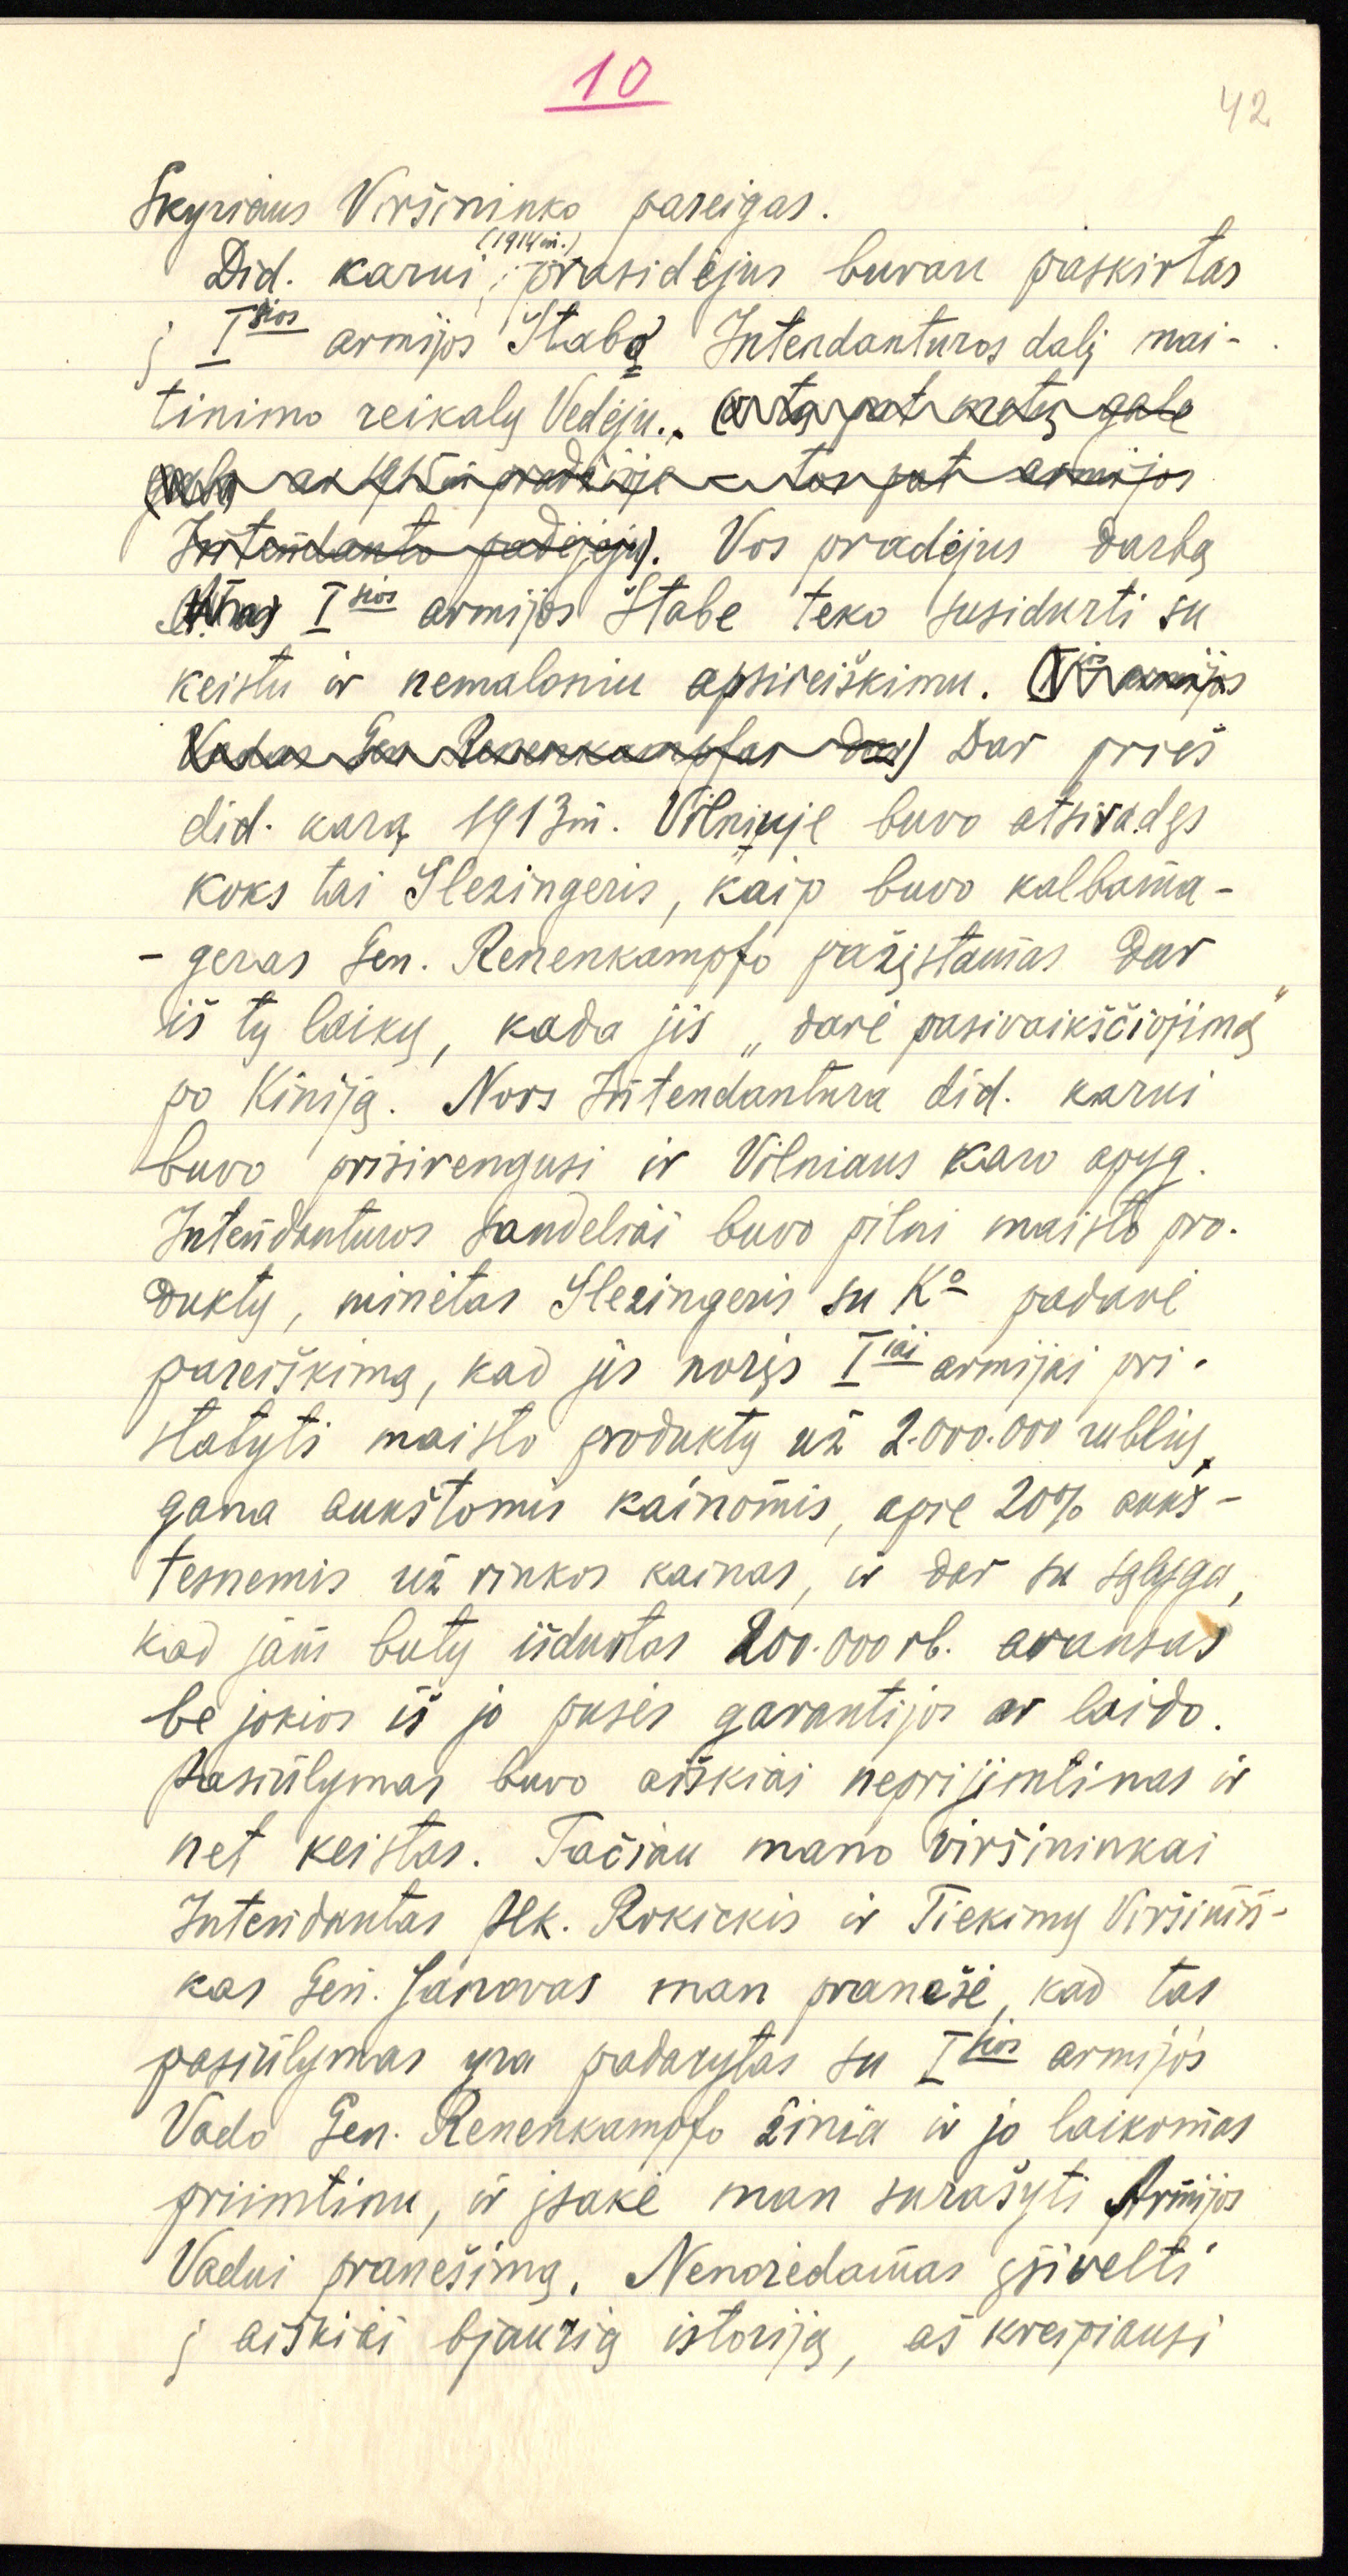 10
42
Skyriaus Viršininko pareigas.
(1914 m.)
Did. karui, prasidėjus buvau paskirtas
į I sios armijos Štabą Intendanturos dalį mai-
tinimo reikalų Vedėju. (o tų pat metų gale
ar 1915 m pradžioje – tos pat armijos
Intendanto padėjėju). Vos pradėjus darbą
I sios armijos Štabe teko susidurti su
keistu ir nemaloniu apsireiškimu. (I ios armijos
Vadas Gen Renenkampfas dar) Dar prieš
did. karą 1913 m. Vilniuje buvo atsiradęs
koks tai Šlezingeris, kaip buvo kalbama -
- geras Gen. Renenkampfo pažįstamas dar
iš tų laikų, kada jis „darė pasivaikščiojimą"
po Kiniją. Nors Intendantura did. karui
buvo prisirengusi ir Vilniaus karo apyg.
Intendanturos sandeliai buvo pilni maisto pro-
duktų, minėtas Šlezingeris su Ko padarė
pareiškimą, kad jis norįs I iai armijai pri-
statyti maisto produktų už 2.000.000 rublių,
gana aukštomis kainomis, apie 20% aukš-
tesnemis už rinkos kainas, ir dar su sąlyga,
kad jam butų išduotas 200.000 rb. avansas
be jokios iš jo pusės garantijos ar laido.
Pasiūlymas buvo aiškiai neprijimtinas ir
net keistas. Tačiau mano viršininkai
Intendantas plk. Rokickis ir Tiekimų Viršinin-
kas Gen. Janovas man pranešė, kad tas
pasiūlymas yra padarytas su I sios armijos
Vado Gen. Renenkampfo žinia ir jo laikomas
priimtinu, ir įsakė man surašyti Armijos
Vadui pranešimą. Nenorėdamas įsivelti
į aiškiai bjaurią istoriją, aš kreipiausi